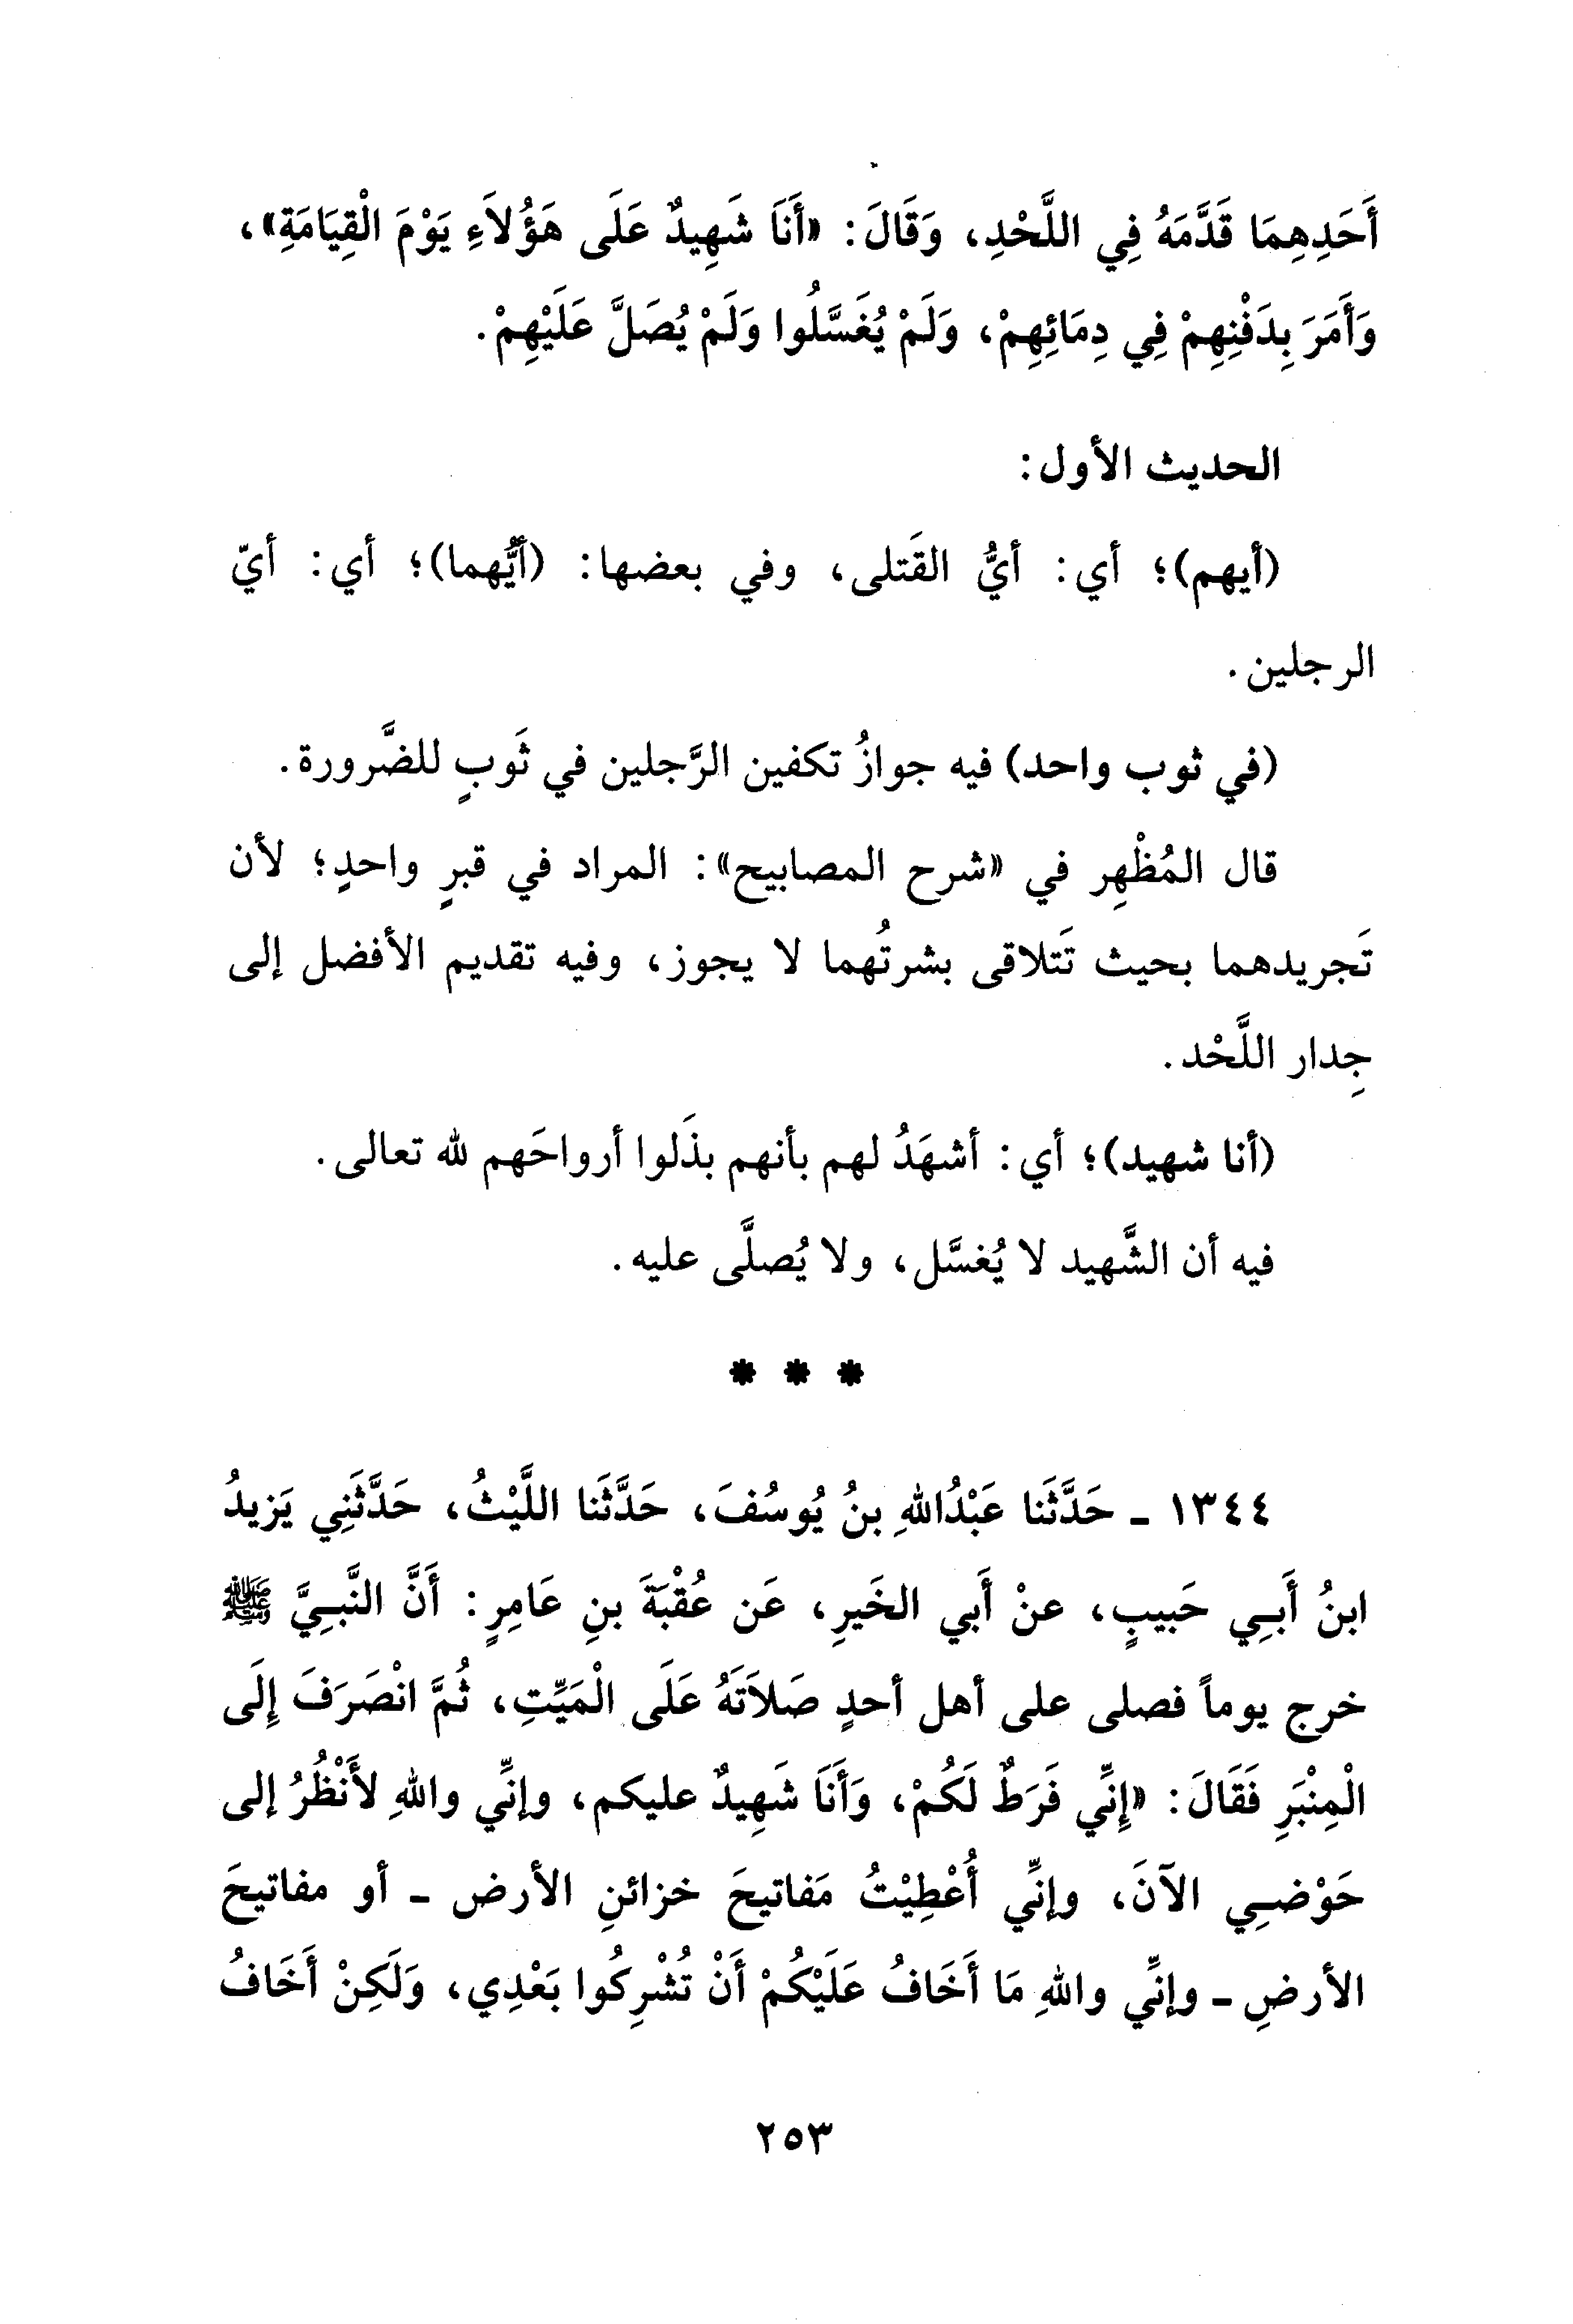 أَحَدِهِمَا قَدَّمَهُ فِي اللَّحْدِ، وَقَالَ: «أَنَا شَهِيدٌ عَلَى هَؤُلاَءِ يَوْمَ الْقِيَامَةِ»،
وَأَمَرَ بِدَفْنِهِمْ فِي دِمَائِهِمْ، وَلَمْ يُغَسَّلُوا وَلَمْ يُصَلَّ عَلَيْهِمْ.
الحديث الأول:
(أيهم)؛ أي: أيُّ القَتلى، وفي بعضها: (أيُّهما)؛ أي: أيّ
الرجلين.
(في ثوب واحد) فيه جوازُ تكفين الرَّجلين في ثَوبٍ للضَّرورة.
قال المُظْهِر في «شرح المصابيح»: المراد في قبرٍ واحدٍ؛ لأن
تَجريدهما بحيث تَتلاقى بشرتُهما لا يجوز، وفيه تقديم الأفضل إلى
جِدار اللَّحْد.
(أنا شهيد)؛ أي: أشهَدُ لهم بأنهم بذَلوا أرواحَهم لله تعالى.
فيه أن الشَّهيد لا يُغسَّل، ولا يُصلَّى عليه.
* * *
١٣٤٤ - حَدَّثَنا عَبْدُاللهِ بنُ يُوسُفَ، حَدَّثَنا اللَّيْثُ، حَدَّثَنِي يَزيدُ
ابنُ أَبِي حَبيبٍ، عنْ أَبي الخَيرِ، عَن عُقْبَةَ بنِ عَامِرٍ: أَنَّ النَّبِيَّ ﷺ
خرج يوماً فصلى على أهل أحدٍ صَلاَتَهُ عَلَى الْمَيِّتِ، ثُمَّ انْصَرَفَ إِلَى
الْمِنْبَرِ فَقَالَ: «إِنِّي فَرَطٌ لَكُمْ، وَأَنَا شَهِيدٌ عليكم، وإنِّي واللهِ لأَنْظُرُ إلى
حَوْضِي الآنَ، وإنِّي أُعْطِيْتُ مَفاتيحَ خزائنِ الأرض - أو مفاتيحَ
الأرضِ - وإنِّي واللهِ مَا أَخَافُ عَلَيْكُمْ أَنْ تُشْرِكُوا بَعْدِي، وَلَكِنْ أَخَافُ
٢٥٣